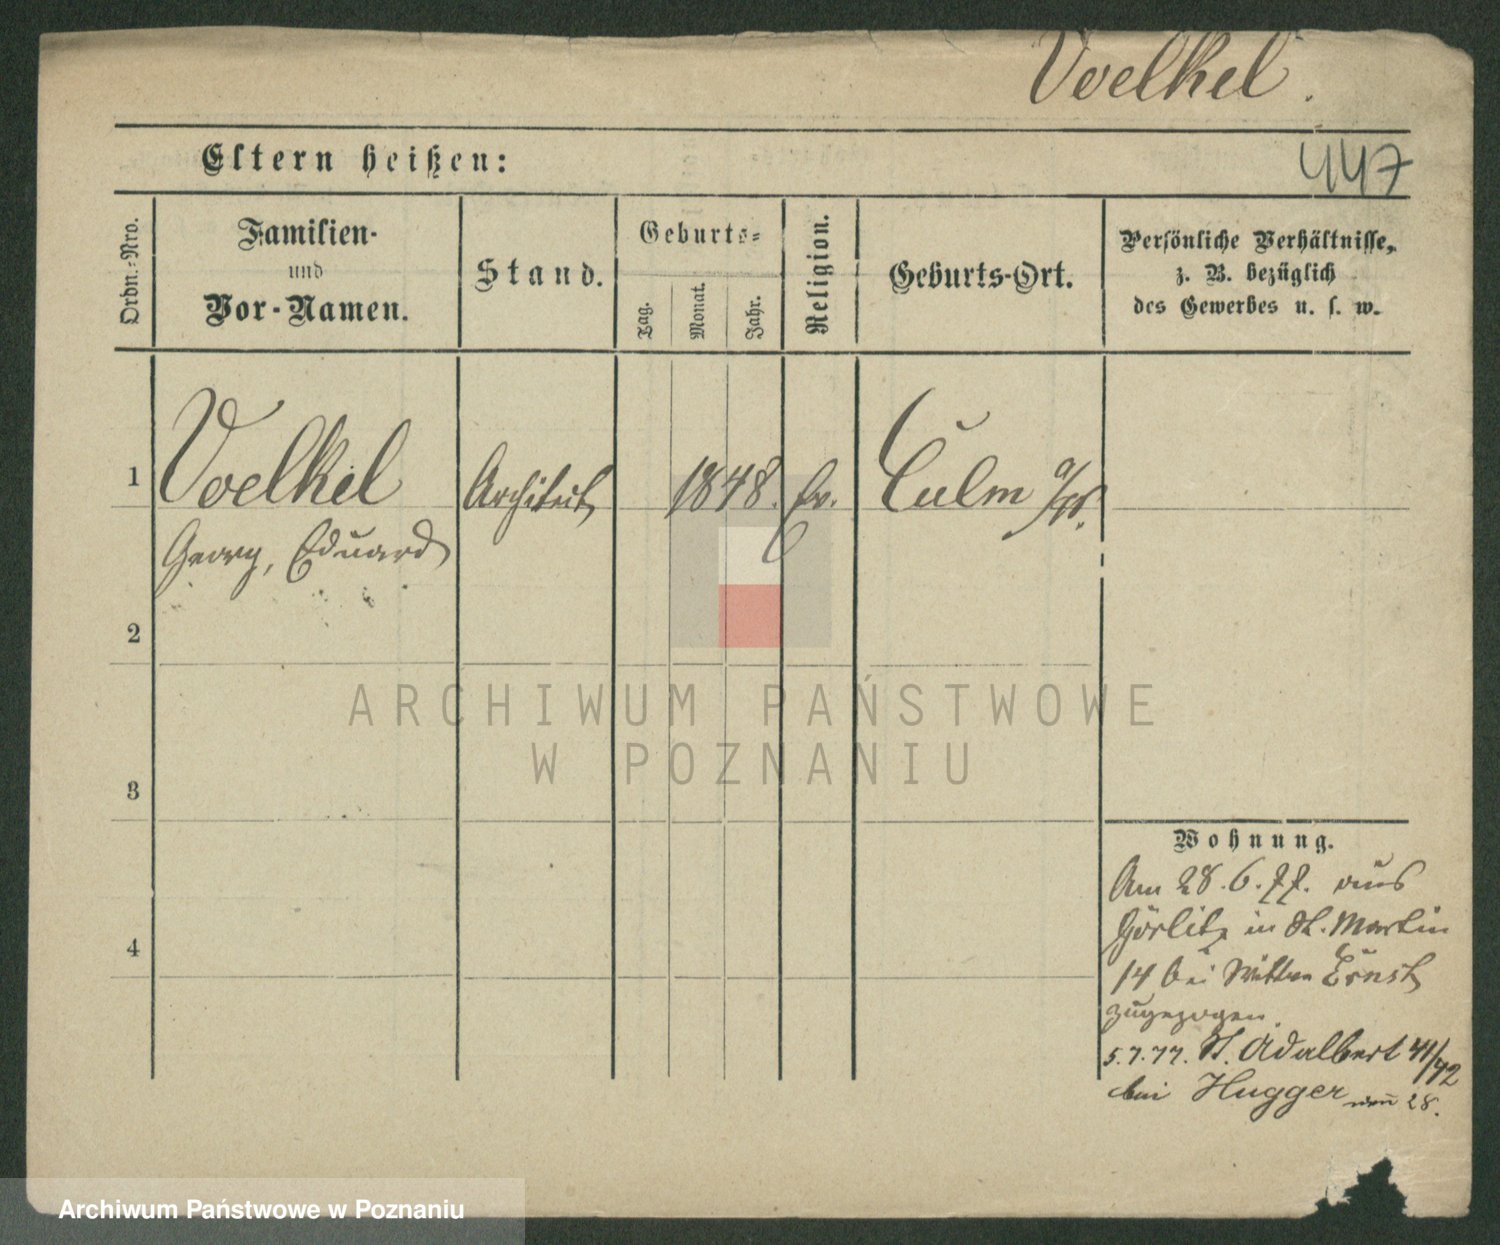 Voelkel.
Eltern heißen:
447
Ordn.-Nro.
Familien-
und
Vor-Namen.
Stand.
Geburts-
Tag.
Monat.
Jahr.
Religion.
Geburts-Ort.
Persönliche Verhältnisse,
z. B. bezüglich
des Gewerbes u. s. w.
1
Voelkel
Georg, Eduard
Architect
1848.
Ev.
Culm
2
3
4
ARCHIWUM PAŃSTWOWE
W POZNANIU
Wohnung.
Am 28.6.77. aus
Görlitz in St. Martin
14 bei Ernst
zugezogen.
5.7.77. St. Adalbert 41/42
bei Hugger 28.
Archiwum Państwowe w Poznaniu